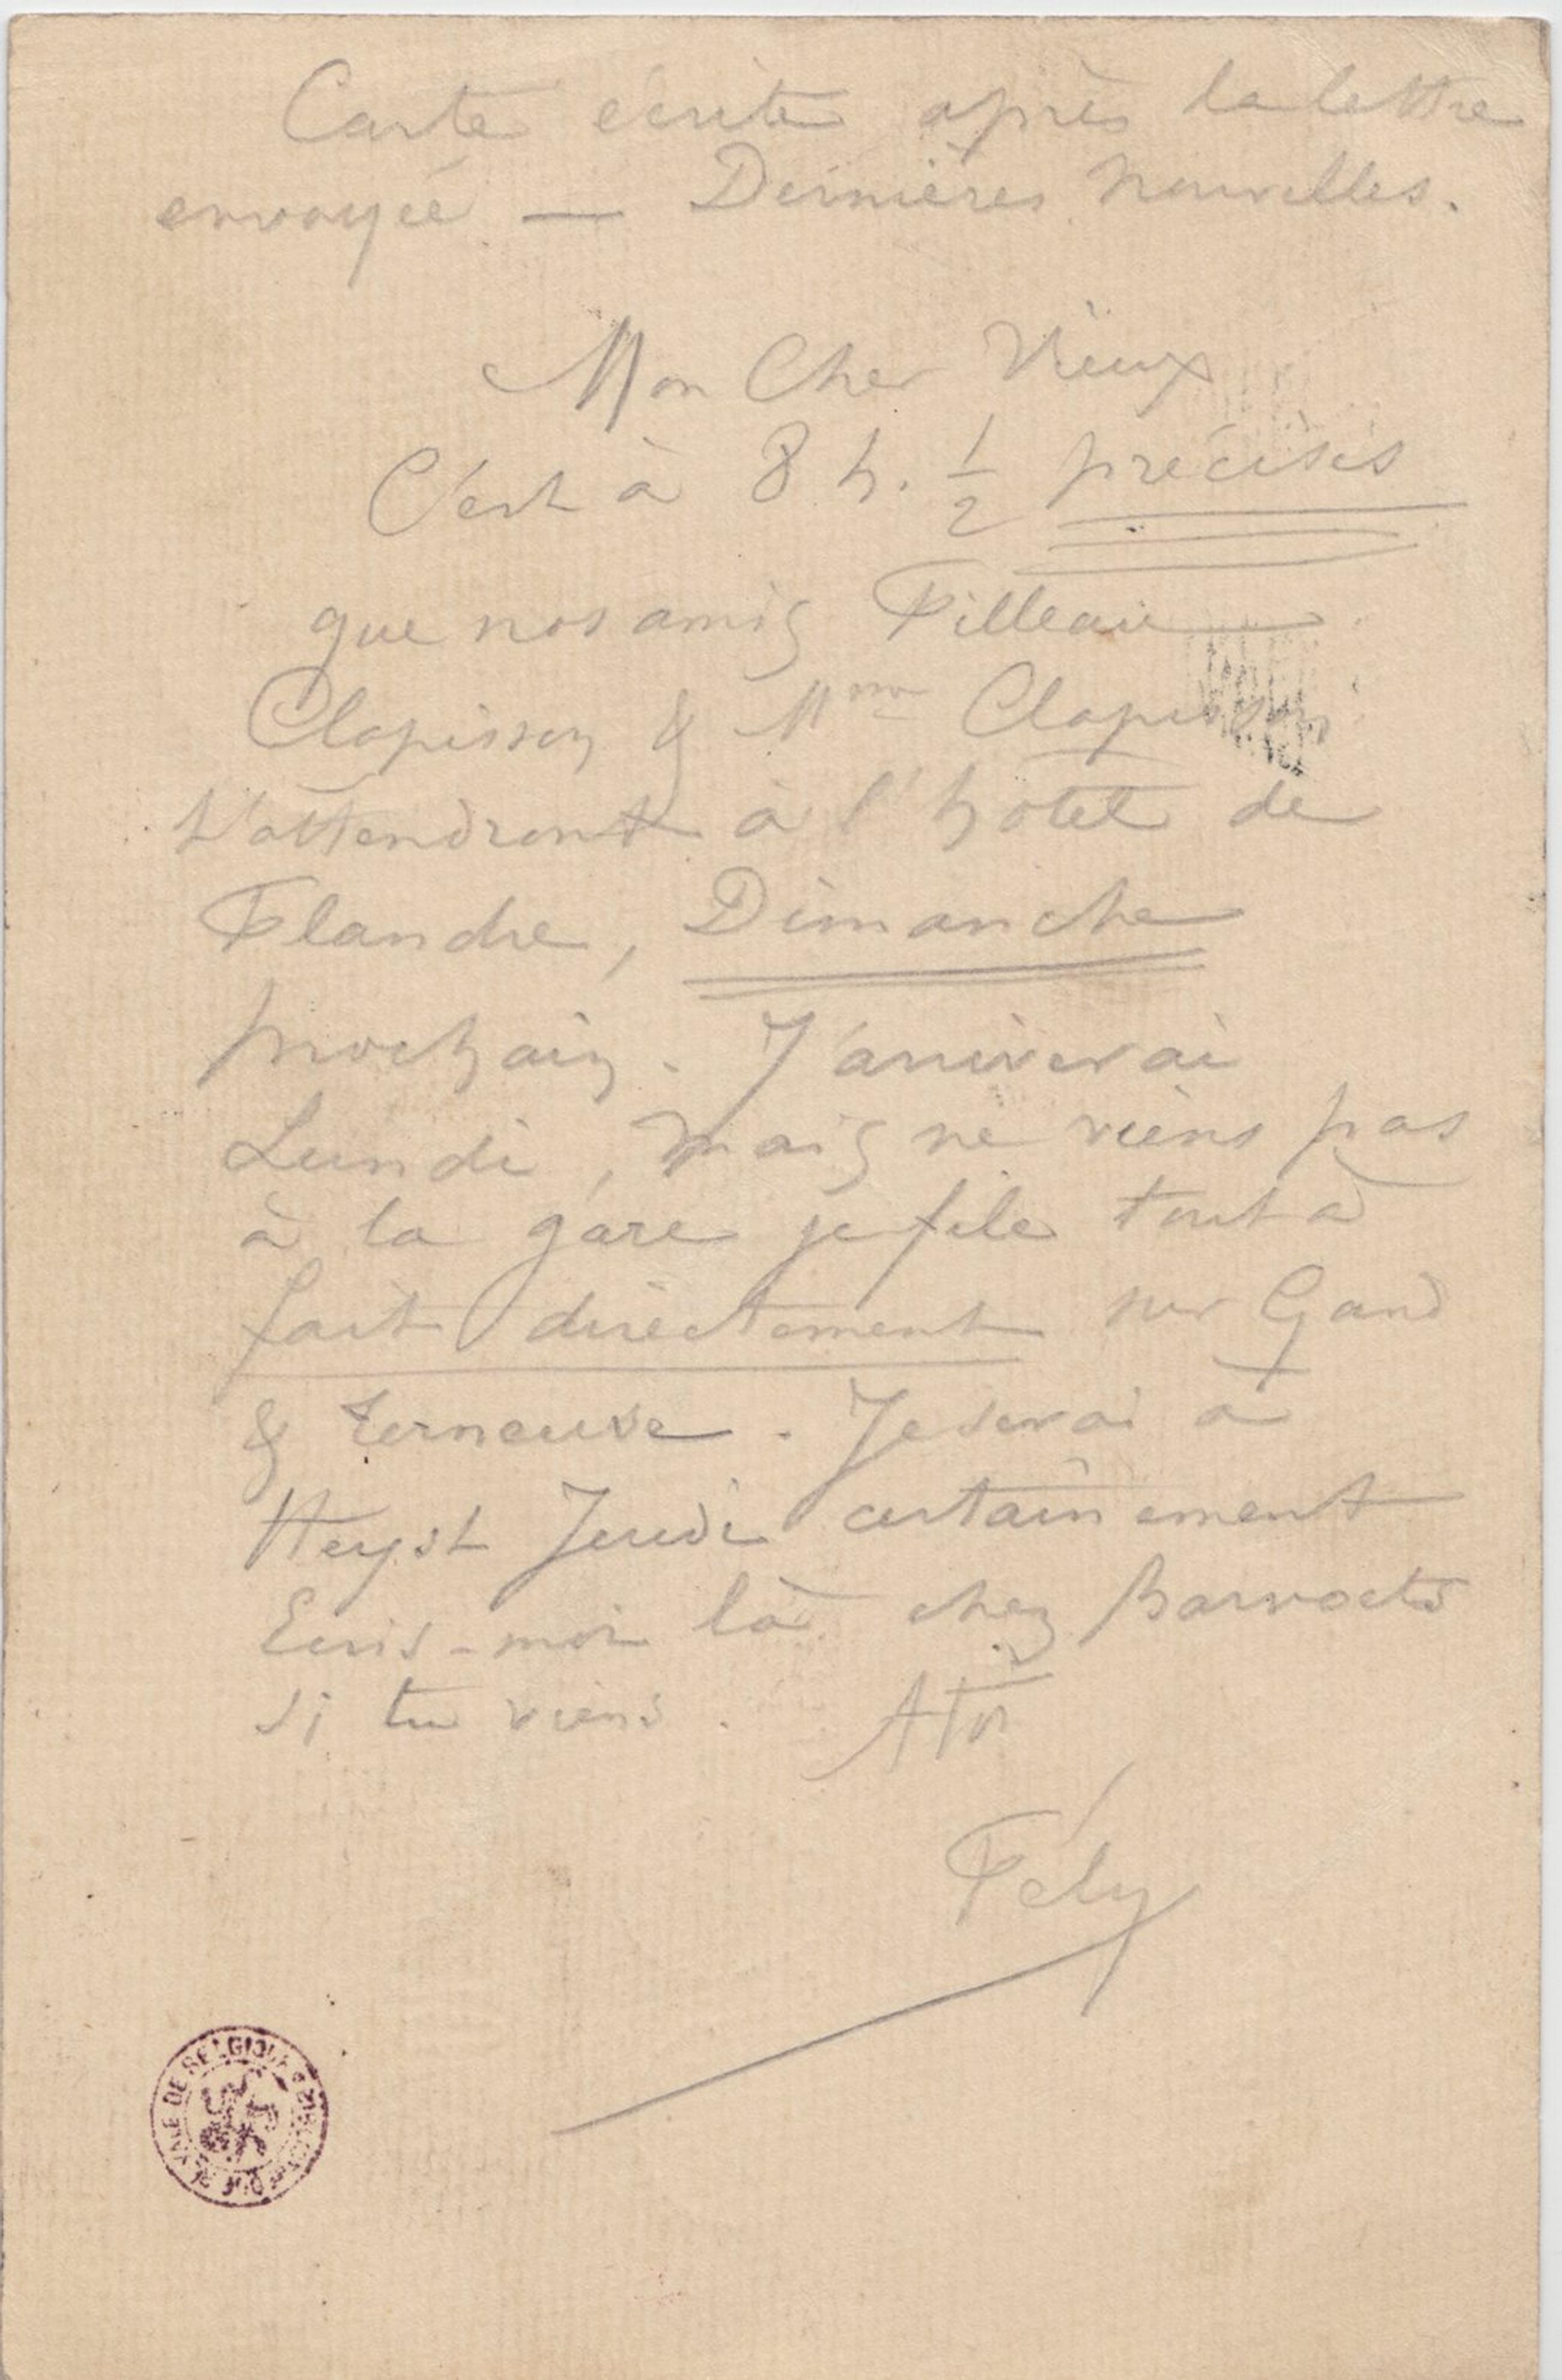 Carte écrite après la lettre
envoyée — Dernières nouvelles.
Mon Cher Vieux
C'est à 8 h. 1/2 précises
que nos amis Filleau
Clapisson & Mme Clapisson
t'attendront à l'hôtel de
Flandre, Dimanche
prochain. J'arriverai
Lundi, mais ne viens pas
à la gare je file tout à
fait directement sur Gand
& Terneuse. Je serai à
Heyst Jeudi certainement
Ecris-moi là chez
si tu viens. A toi
Fély